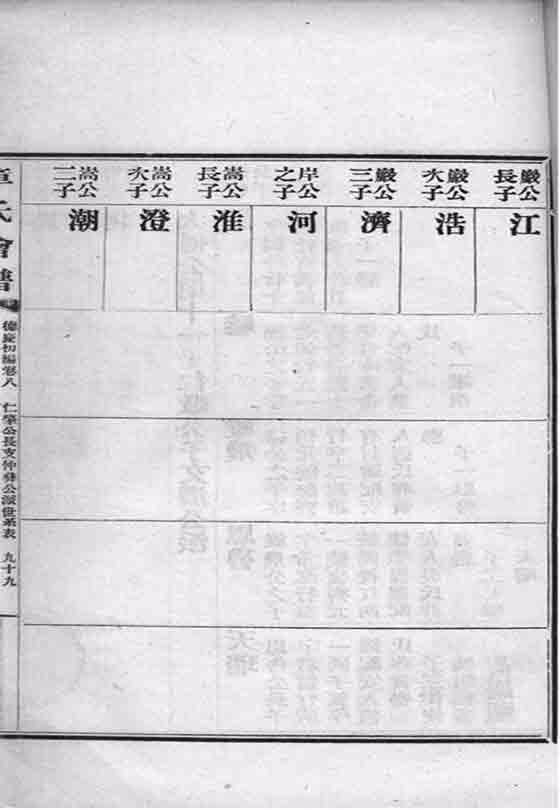 巖公長子
江
巖公次子
浩
巖公三子
濟
岸公之子
河
嵩公長子
淮
嵩公次子
澄
嵩公三子
潮
章氏會譜
德慶初編卷八 仁肇公長支仲發公派世系表 九十九